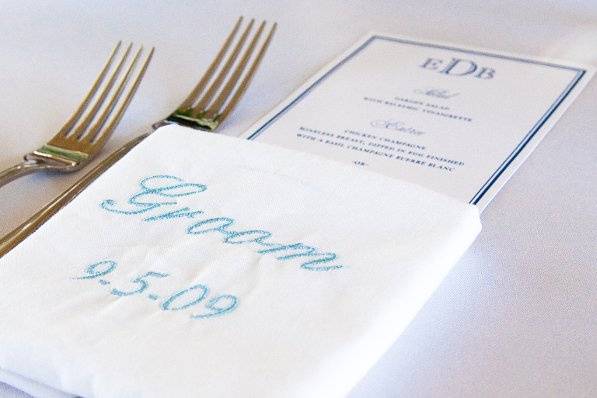 EDB
Salad
GARDEN SALAD
WITH BALSAMIC VINAIGRETTE
Entrée
CHICKEN CHAMPAGNE
BONELESS BREAST, DIPPED IN EGG FINISHED
WITH A BASIL CHAMPAGNE BUERRE BLANC
-OR-
Groom
9.5.09